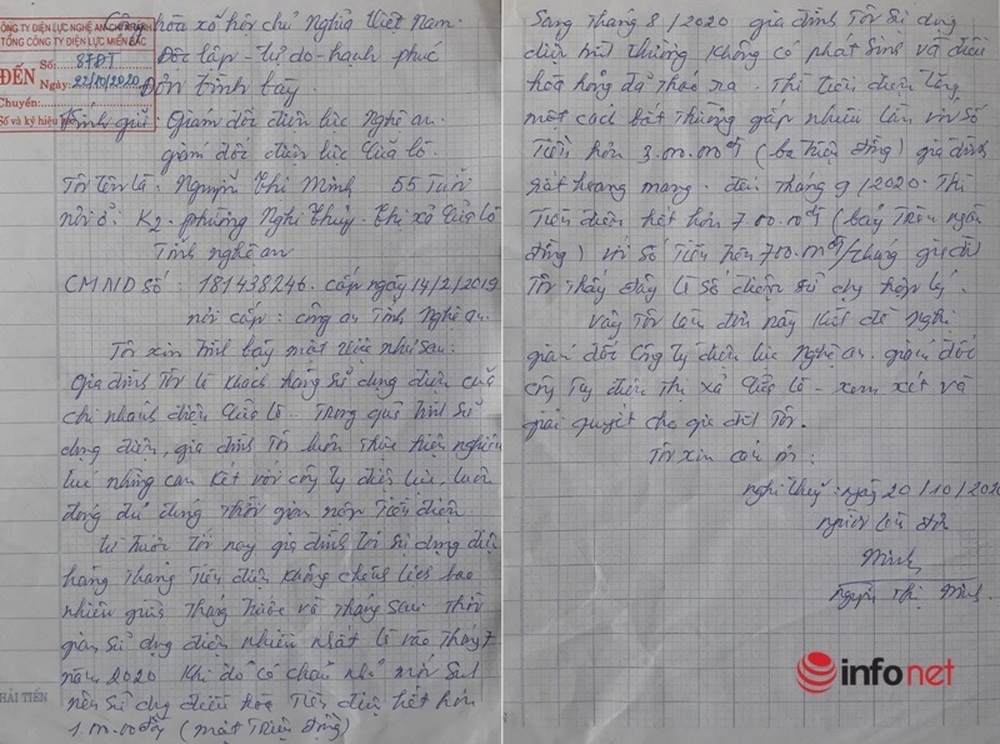 CÔNG TY ĐIỆN LỰC NGHỆ AN-CHI NHÁNH
TỔNG CÔNG TY ĐIỆN LỰC MIỀN BẮC
ĐẾN
Số: 87ĐT
Ngày: 22/10/2020
Chuyển:
Số và ký hiệu
Cộng hòa xã hội chủ nghĩa Việt Nam.
Độc lập - tự do - hạnh phúc
Đơn trình bày.
Kính gửi: Giám đốc điện lực Nghệ an.
giám đốc điện lực Cửa lò.
Tôi tên là. Nguyễn Thị Minh 55 Tuổi
nơi ở: K2. phường Nghi thủy. thị xã Cửa lò
Tỉnh nghệ an
CMND số: 181438246. cấp ngày 14/2/2019
nơi cấp: công an Tỉnh Nghệ an.
Tôi xin trình bày một việc như sau:
Gia đình Tôi là khách hàng sử dụng điện của
chi nhánh điện Cửa lò. Trong quá trình sử
dụng điện, gia đình Tôi luôn thực hiện nghiêm
túc những cam kết với công ty điện lực, luôn
đóng đủ đúng thời gian nộp Tiền điện.
từ trước tới nay gia đình tôi sử dụng điện
hàng tháng tiền điện không chênh lệch bao
nhiêu giữa tháng trước và tháng sau. Thời
gian sử dụng điện nhiều nhất là vào tháng 7
năm 2020 khi đó có cháu nhỏ mới sinh
nên sử dụng điều hòa Tiền điện hết hơn
1.000.000đ (một Triệu đồng)
HẢI TIẾN
Sang tháng 8/2020 gia đình Tôi sử dụng
điện bình thường không có phát sinh và điều
hòa hỏng đã tháo ra. Thì tiền điện tăng
một cách bất thường gấp nhiều lần với số
Tiền hơn 3.000.000đ (ba triệu đồng) gia đình
rất hoang mang. đến tháng 9/2020. Thì
Tiền điện hết hơn 700.000đ (bảy Trăm ngàn
đồng) với số Tiền hơn 700.000đ/tháng gia đình
Tôi thấy đây là số điện sử dụng hợp lý.
Vậy Tôi làm đơn này kính đề nghị
giám đốc công ty điện lực Nghệ an. giám đốc
công ty điện thị xã Cửa lò - xem xét và
giải quyết cho gia đình Tôi.
Tôi xin cám ơn:
nghi thủy: ngày 20/10/2020
người làm đơn
Minh
nguyễn Thị Minh.
infonet